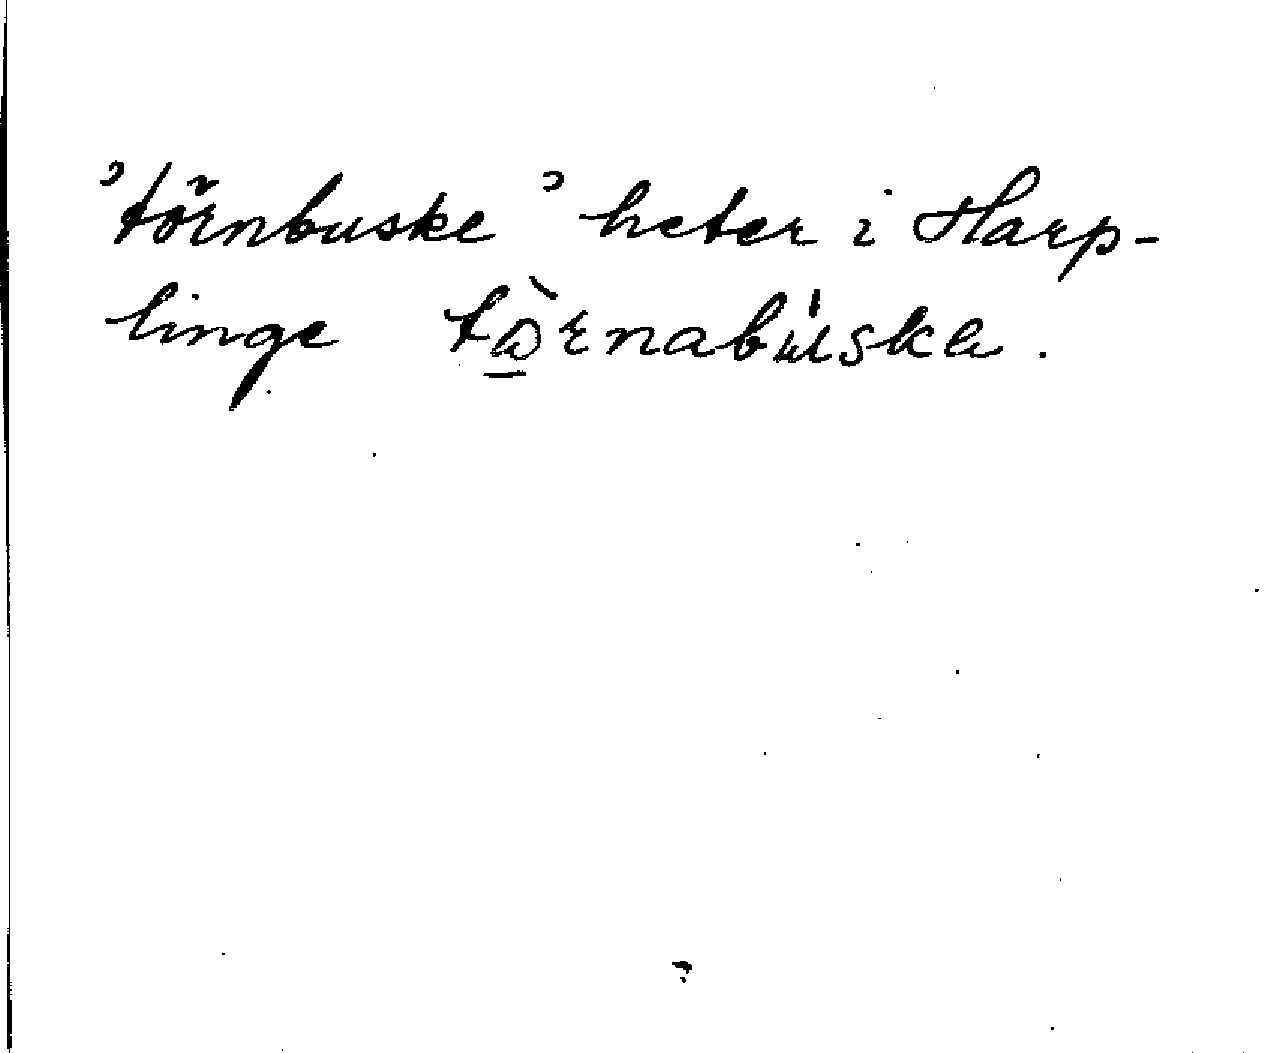 ’törnbuske’ heter i Harp-
linge tö̀rnabúska.